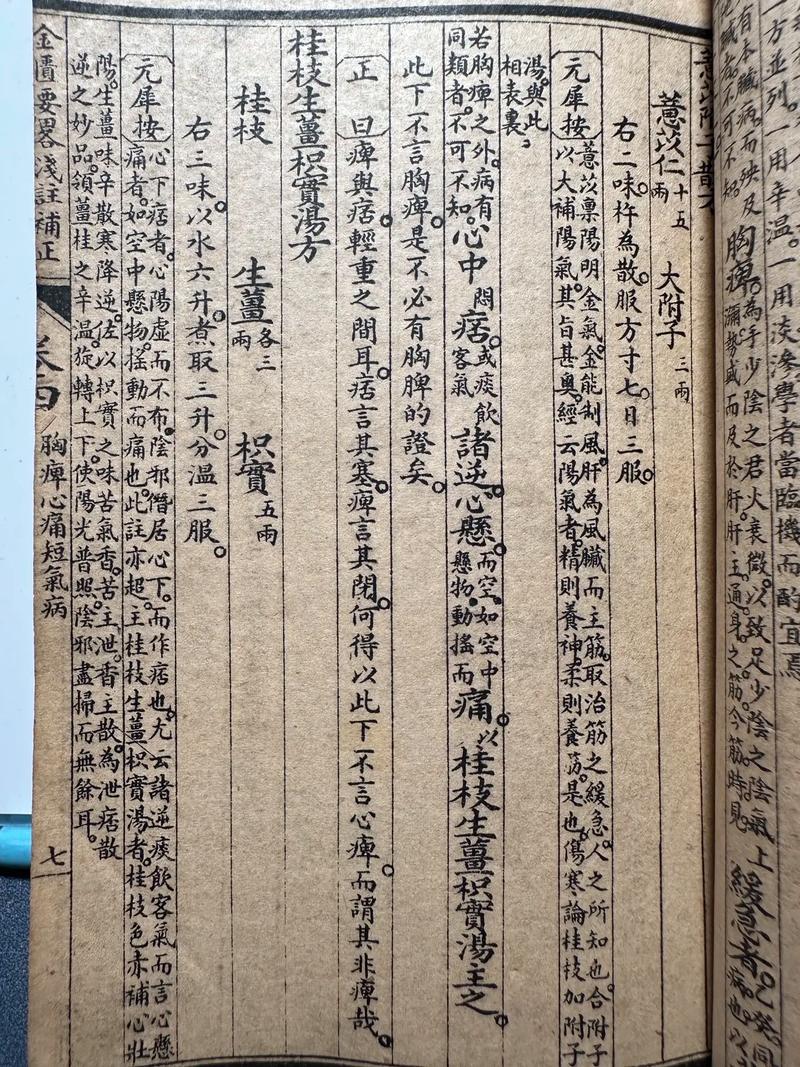 有本臟病而殃及
不可不知
胸痺
為手少陰之君火衰微以致足少陰之陰氣上
瀰勢盛而及於肝肝主通身之筋今筋時見
緩急者
方並列一用辛溫一用淡滲學者當臨機而酌宜焉
薏苡仁十五兩 大附子三兩
右二味杵為散服方寸七日三服
元犀按
薏苡禀陽明金氣金能制風肝為風臟而主筋取治筋之緩急人之所知也合附子
以大補陽氣其旨甚奧經云陽氣者精則養神柔則養筋是也傷寒論桂枝加附子
湯與此
相表裏
若胸痺之外病有
同類者不可不知
心中悶痞或痰飲客氣諸逆心懸而空如空中懸物動搖而痛以桂枝生薑枳實湯主之
此下不言胸痺是不必有胸脾的證矣
正曰痺與痞輕重之間耳痞言其塞痺言其閉何得以此下不言心痺而謂其非痺哉
桂枝生薑枳實湯方
桂枝 生薑各三兩 枳實五兩
右三味以水六升煮取三升分溫三服
元犀按
心下痞者心陽虛而不布陰邪僭居心下而作痞也尤云諸逆痰飲客氣而言心懸
痛者如空中懸物搖動而痛也此註亦超主桂枝生薑枳實湯者桂枝色赤補心壯
陽生薑味辛散寒降逆佐以枳實之味苦氣香苦主泄香主散為泄痞散
逆之妙品領薑桂之辛溫旋轉上下使陽光普照陰邪盡掃而無餘耳
金匱要畧淺註補正 卷四 胸痺心痛短氣病 七